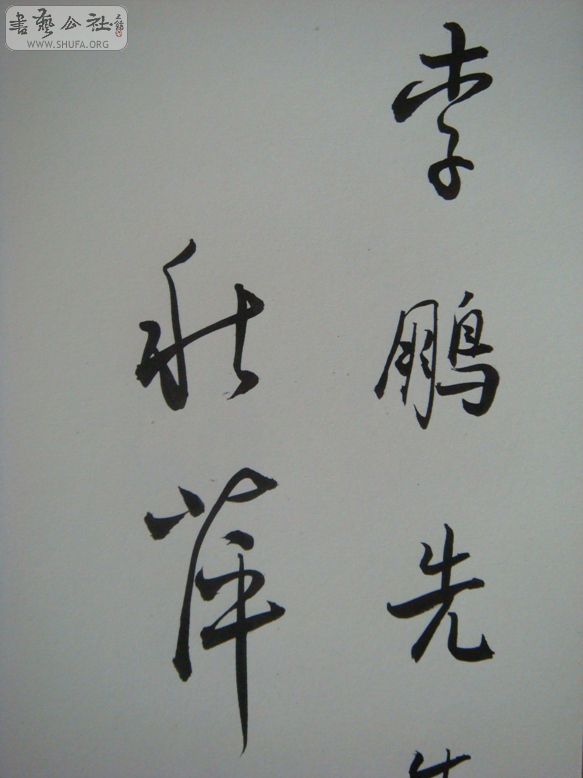 書藝公社
WWW.SHUFA.ORG
李鵬先生
秋萍